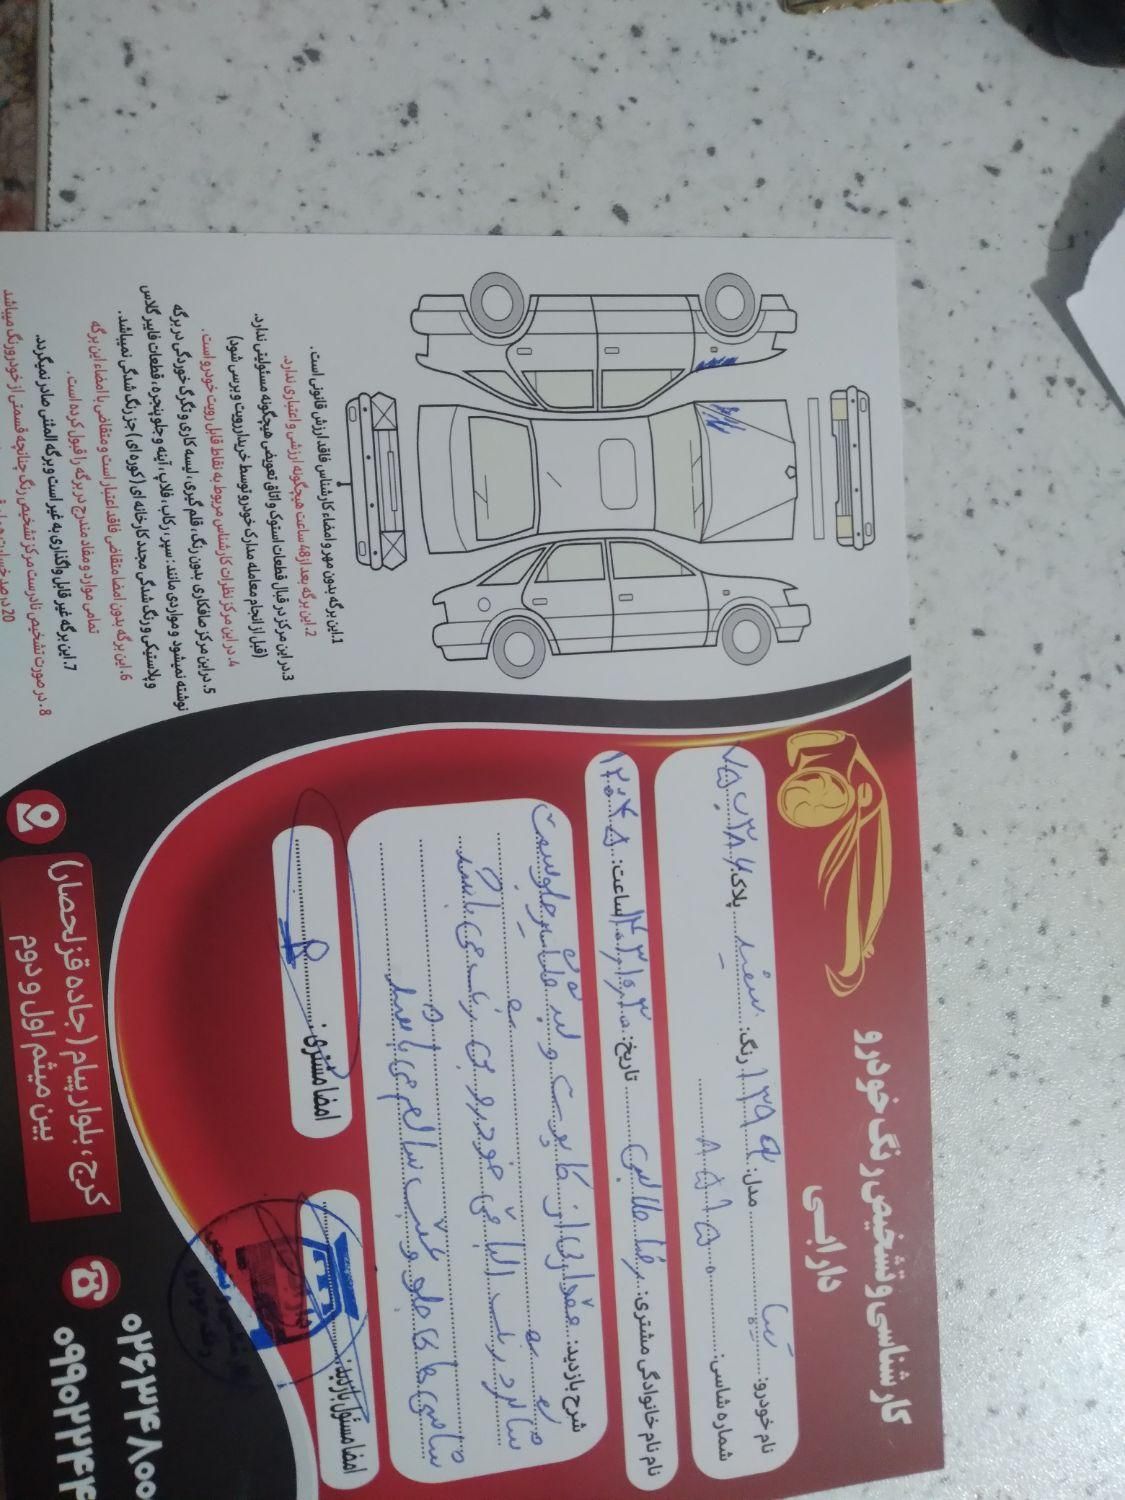 کارشناسی و تشخیص رنگ خودرو
دارابی
نام خودرو: تیبا مدل: ۱۳۹۹ رنگ: سفید پلاک:
شماره شاسی: ۸۵۱۵۰۰
نام نام خانوادگی مشتری: تاریخ: ساعت:
شرح بازدید: مقداری از کاپوت و لبه گلگیر جلو سمت
می باشد
شاسی های جلو و عقب سالم می باشد
امضا مسئول بازدید:
امضا مشتری:
1. این برگه بدون مهر و امضاء کارشناس فاقد ارزش قانونی است.
2. این برگه بعد از 48 ساعت هیچگونه ارزشی و اعتباری ندارد.
3. در این مرکز در قبال قطعات استوک و اتاق تعویضی هیچگونه مسئولیتی ندارد.
(قبل از انجام معامله مدارک خودرو توسط خریدار رویت و برسی شود)
4. در این مرکز نظرات کارشناس مربوط به نقاط قابل رویت خودرو است.
5. در این مرکز صافکاری بدون رنگ، قلم گیری، لیسه کاری و تگرگ خوردگی در برگه
نوشته نمیشود و مواردی مانند: سپر، رکاب، فلاپ، آینه و جلو پنجره، قطعات فایبر گلاس
و پلاستیکی و رنگ شدگی مجدد کارخانه ای (کوره ای) جز رنگ شدگی نمیباشد.
6. این برگه بدون امضا متقاضی فاقد اعتبار است و متقاضی با امضاء این برگه
تمامی موارد و مفاد مندرج در برگه را قبول کرده است.
7. این برگه غیر قابل واگذاری به غیر است و برگه المثنی صادر نمیگردد.
8. در صورت تشخیص نادرست مرکز تشخیص رنگ چنانچه قسمتی از خودرو رنگ میباشد
20 درصد خسارت
کرج، بلوار پیام (جاده قزلحصار)
بین میثم اول و دوم
۰۲۶۳۴۸۰۰
۰۹۹۰۲۲۴۴